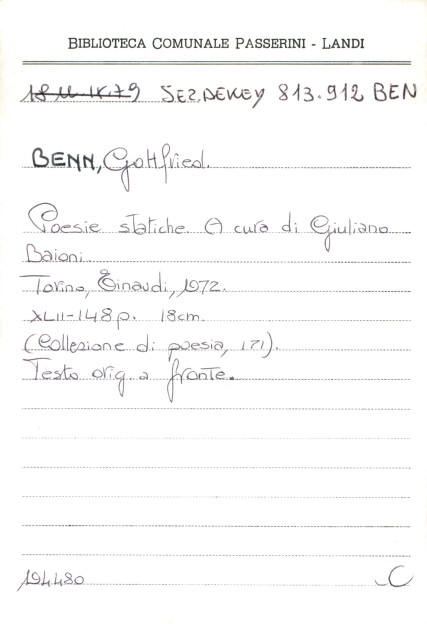 BIBLIOTECA COMUNALE PASSERINI - LANDI
18 M IX.79 SEZ.DEWEY 813.912 BEN
BENN, Gottfried.
Poesie statiche. A cura di Giuliano
Baioni.
Torino, Einaudi, 1972.
XLII-148 p. 18cm.
(Collezione di poesia, 171).
Testo orig. a fronte.
194480 C